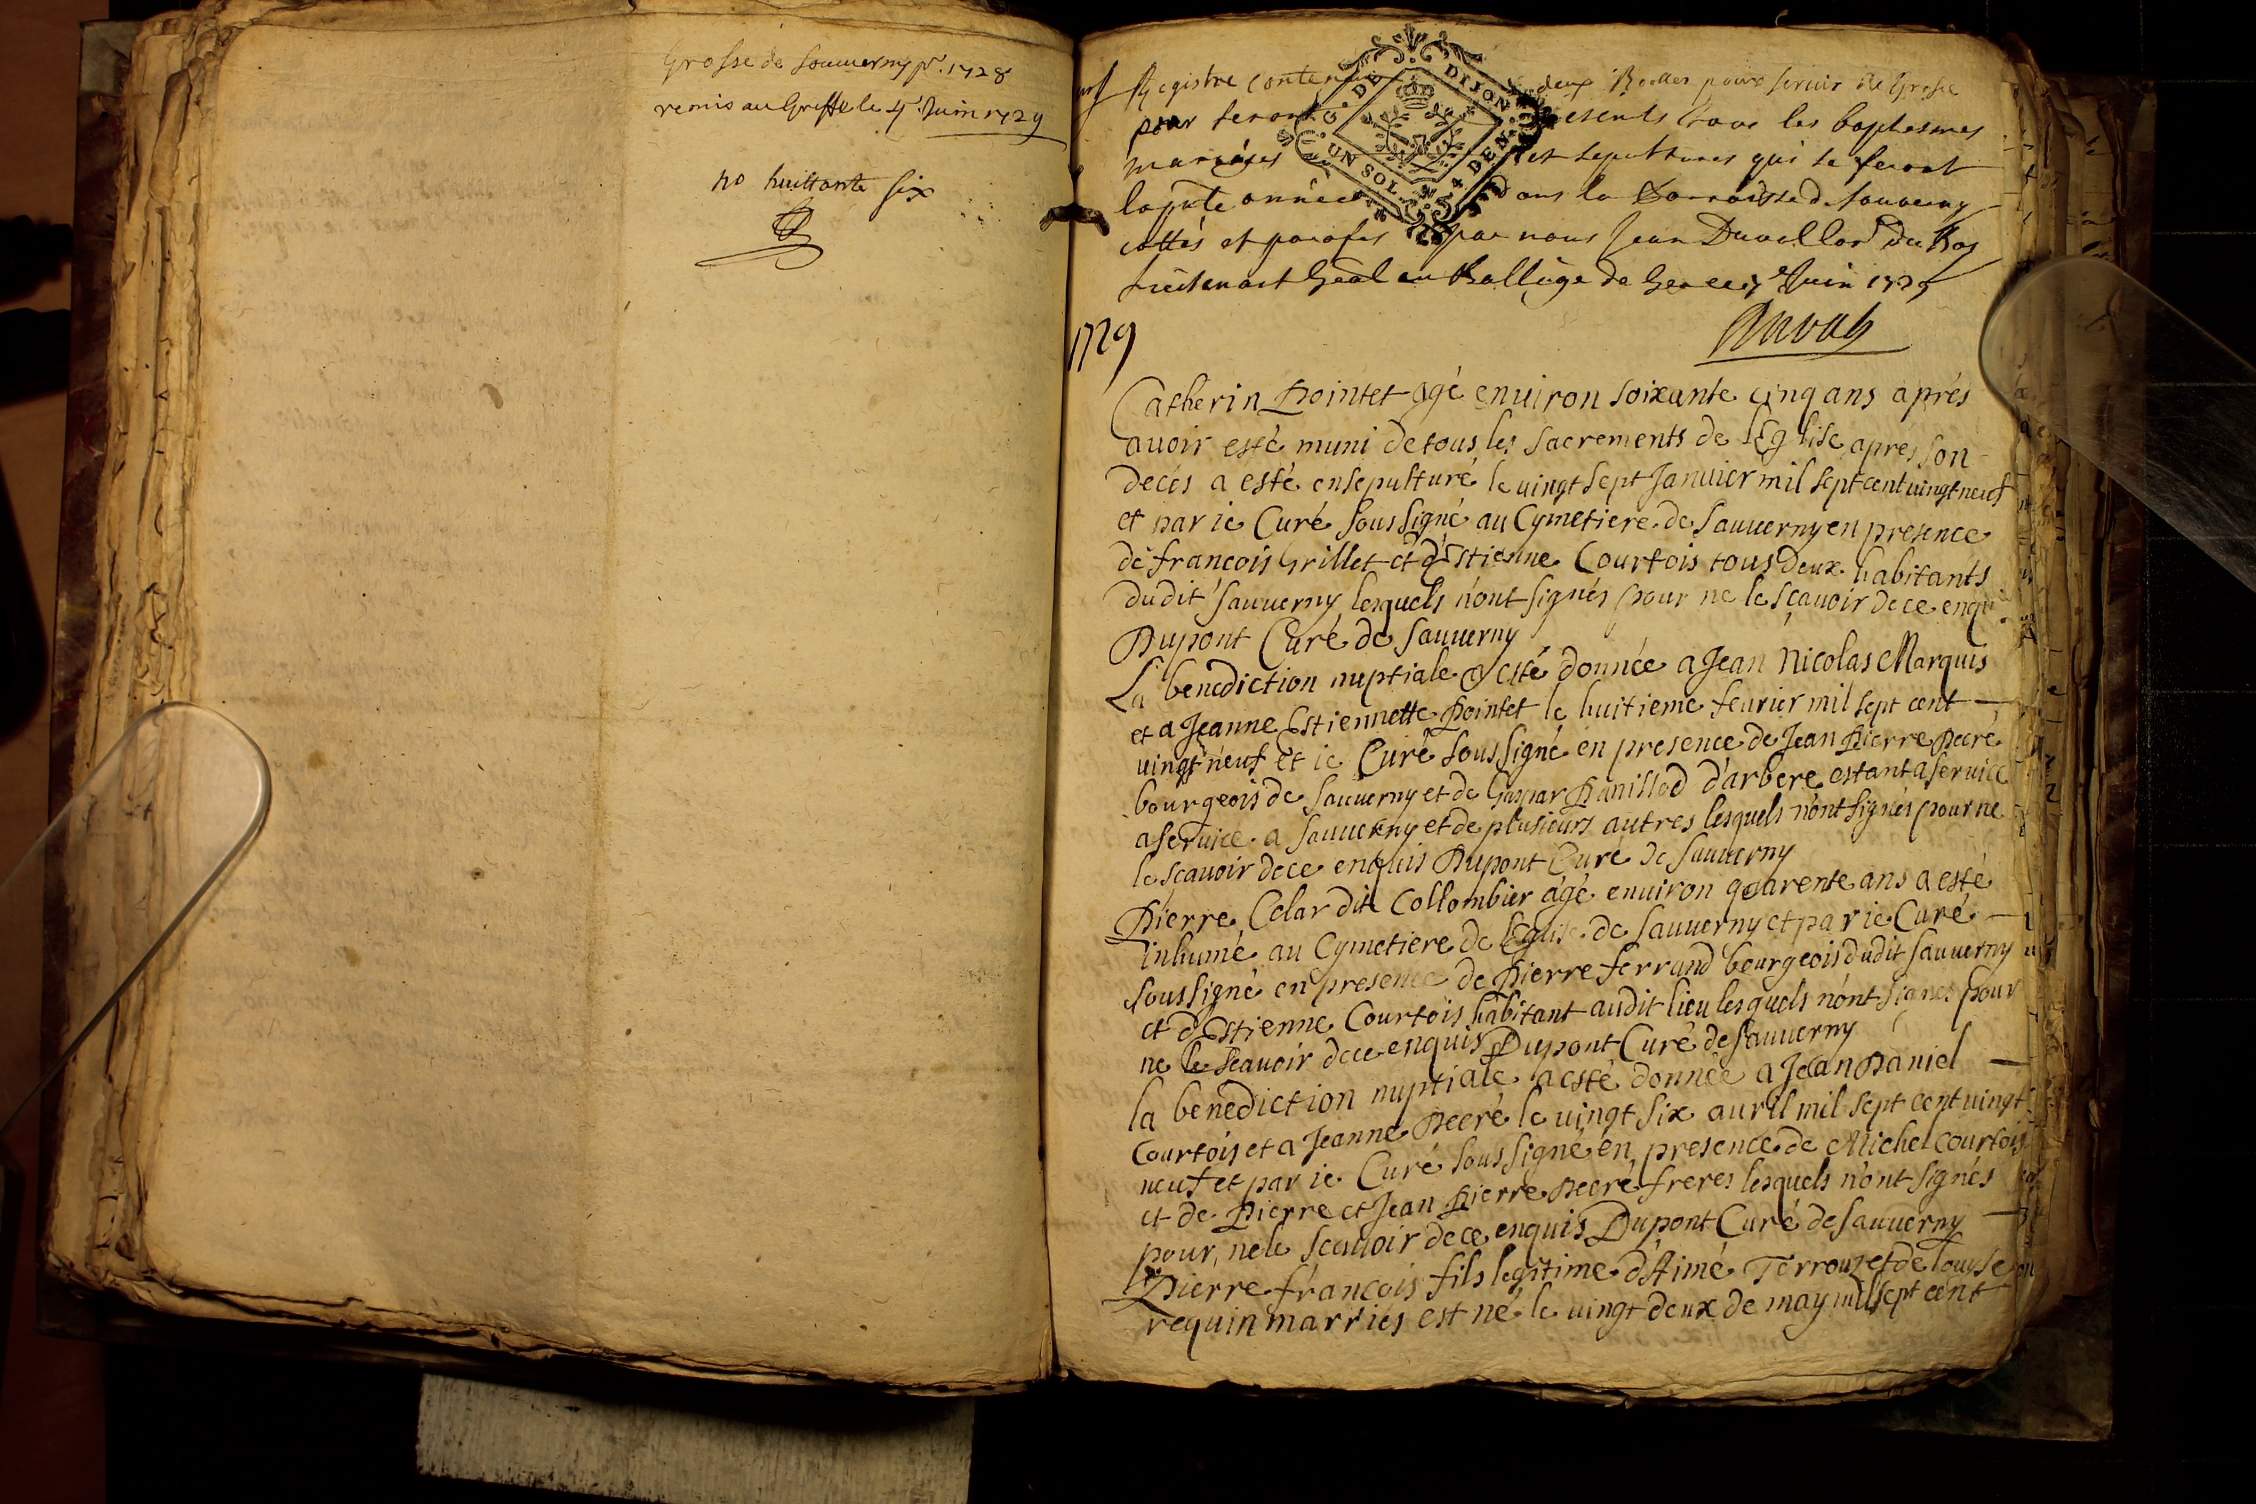 Grosse de Sauverny pr. 1728
remis au Greffe le 4e Juin 1729
no huittante six
Registre contenant deux Rolles pour servir de Grosse
pour seront les baptesmes
mariages et sepultures qui se feront
la pnte année dans la Parroisse de Sauverny
cottés et parafés par nous Jean Duval
Lieutenant Gnal au Balliage de Gex ce Juin 1729
G. DE DIJON
UN SOL 4 DEN.
1729
Duval
Catherin Pointet agé enuiron soixante cinq ans aprés
auoir esté muni de tous les sacrements de lEglise apres son
decés a esté ensepulturé le uingt sept Januier mil sept cent uingt neuf
et par ie Curé soussigné au Cymetiere de Sauuerny en presence
de francois Grillet et d'Estienne Courtois tous deux habitants
dudit Sauuerny lesquels n'ont signés pour ne le sçauoir de ce enquis
Dupont Curé de Sauuerny
La benediction nuptiale a esté donnée a Jean Nicolas Marquis
et a Jeanne Estiennette Pointet le huitieme feurier mil sept cent
uingt neuf et ie Curé soussigné en presence de Jean Pierre Decré
bourgeois de Sauuerny et de Gaspar Panillod d'arbere estant a seruice
a seruice a Sauuerny et de plusieurs autres lesquels n'ont signés pour ne
le scauoir de ce enquis Dupont Curé de Sauuerny
Pierre Celar dit Collombier agé enuiron quarente ans a esté
inhumé au Cymetiere de lEglise de Sauuerny et par ie Curé
soussigné en presence de Pierre ferrand bourgeois dudit Sauuerny
et d'Estienne Courtois habitant audit lieu lesquels n'ont signés pour
ne le scauoir de ce enquis Dupont Curé de Sauuerny
la benediction nuptiale a esté donnée a Jean Daniel
Courtois et a Jeanne Decré le uingt six auril mil sept cent uingt
neuf et par ie Curé soussigné en presence de Michel Courtois
et de Pierre et Jean Pierre Decré freres lesquels n'ont signés
pour ne le scauoir de ce enquis Dupont Curé de Sauuerny
Pierre francois fils legitime d'Aimé Terroux et de Louyse
requin marriés est né le uingt deux de may mil sept cent